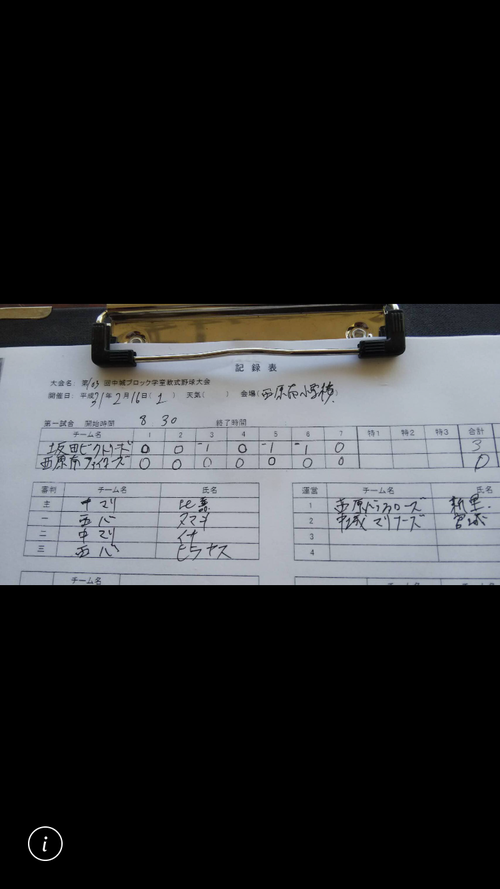 記録表
大会名 第103回中城ブロック学童軟式野球大会
開催日:平成31年2月16日( ) 天気( ) 会場(西原南小学校)
第一試合 開始時間 8 30 終了時間
チーム名 1 2 3 4 5 6 7 特1 特2 特3 合計
坂田ビクトリーズ 0 0 1 0 1 1 0 3
西原南ファイターズ 0 0 0 0 0 0 0 0
審判 チーム名 氏名
主 中マリ 比嘉
一 西バ
二 中マリ
三 西バ
運営 チーム名 氏名
1 西原 新里
2 中城マリナーズ 宮城
3
4
チーム名 チーム名
i